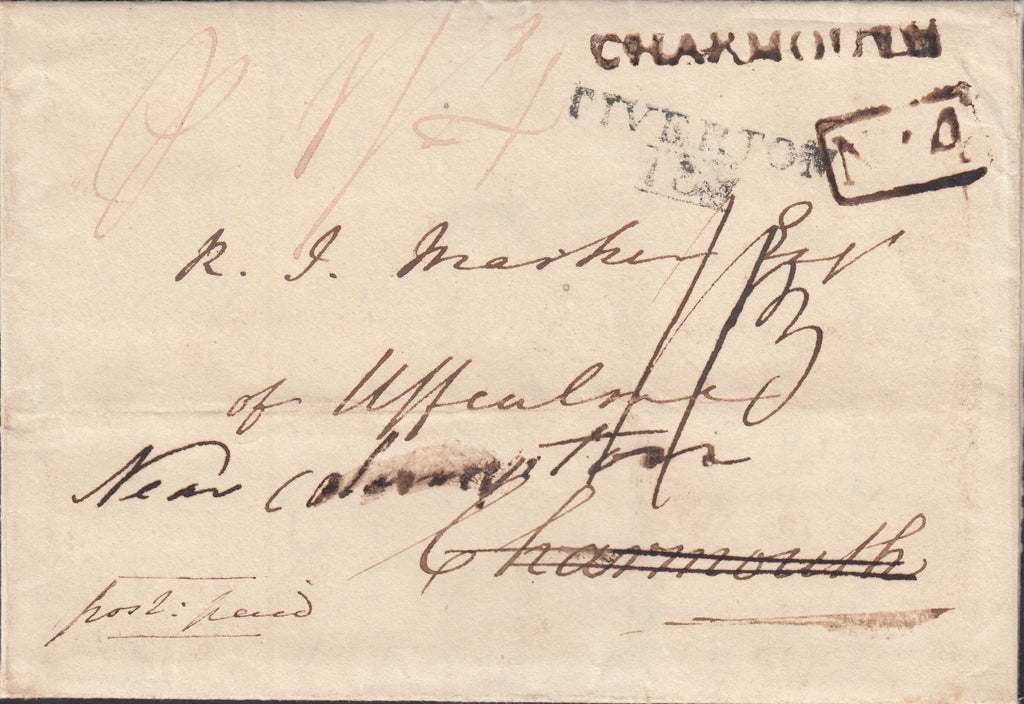 CHARMOUTH
TIVERTON
No. 4
R. J. Marker Esqr
of Uffculme
Near Collumpton
Charmouth
post: paid